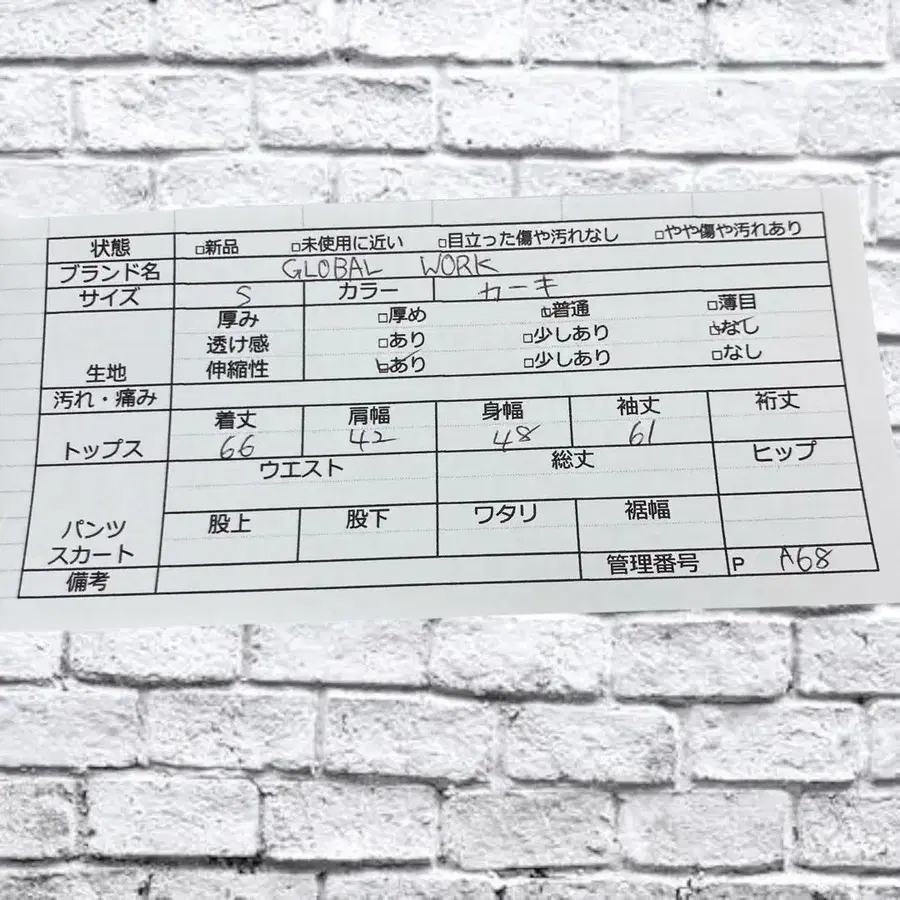 状態 □新品 □未使用に近い □目立った傷や汚れなし □やや傷や汚れあり
ブランド名 GLOBAL WORK
サイズ S カラー カーキ
厚み □厚め □普通 □薄目
透け感 □あり □少しあり □なし
生地 伸縮性 □あり □少しあり □なし
汚れ・痛み
着丈 肩幅 身幅 袖丈 裄丈
トップス 66 42 48 61
ウエスト 総丈 ヒップ
股上 股下 ワタリ 裾幅
パンツ
スカート
備考 管理番号 P A68